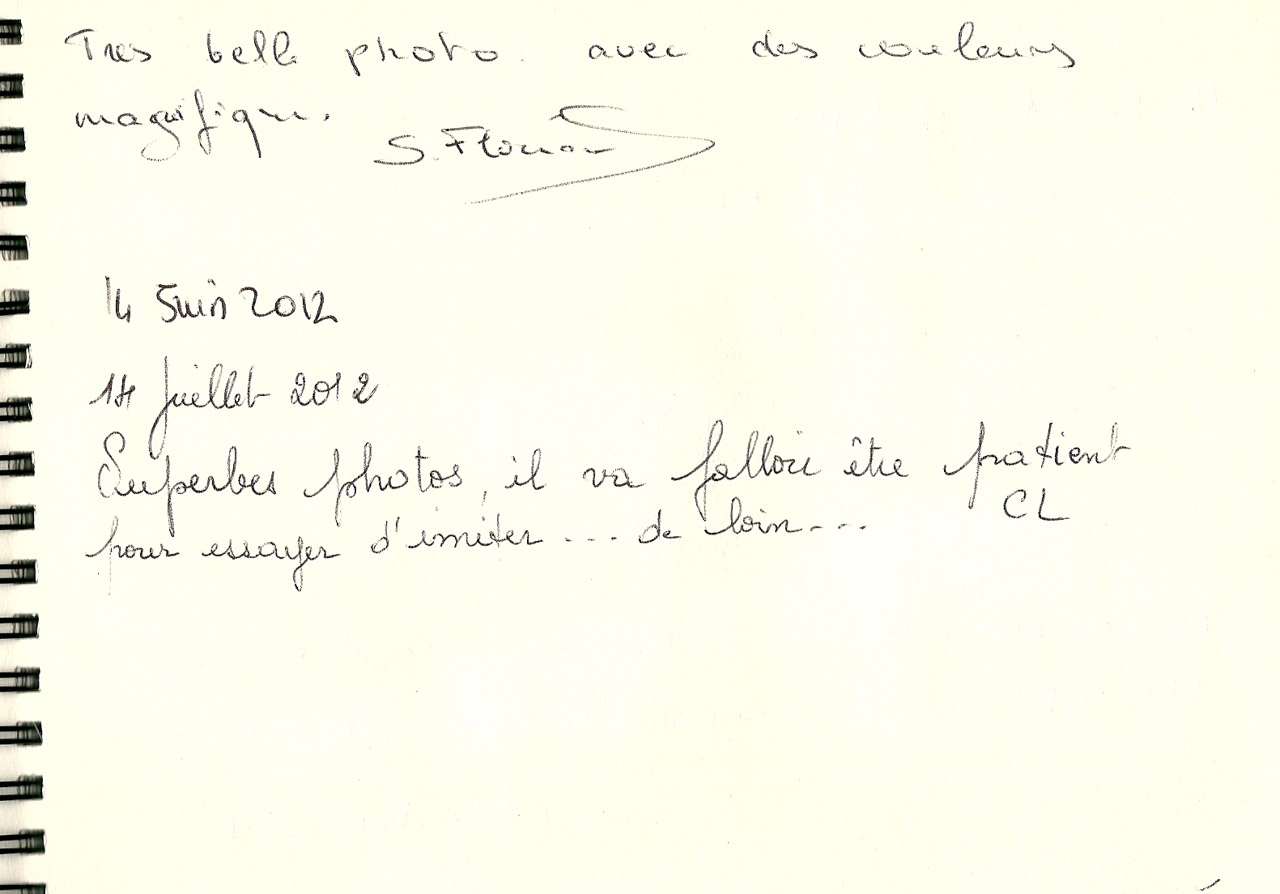 Tres belle photo avec des couleurs
magnifique.
S.
14 Juin 2012
14 Juillet 2012
Superbes photos, il va falloir être patient
pour essayer d'imiter ... de loin ...
CL